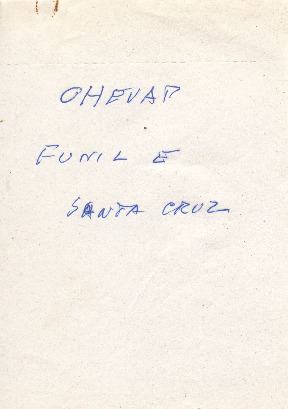 CHEVAP
FUNIL E
SANTA CRUZ